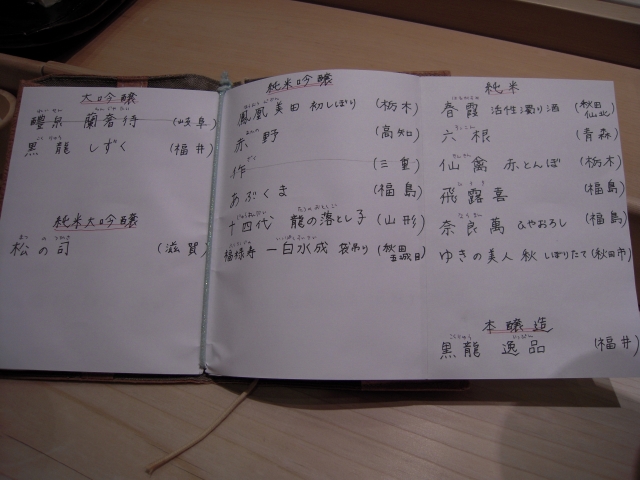 大口吟醸
醴泉 蘭奢待 (岐阜)
黒龍 しずく (福井)
純米大口吟醸
松の司 (滋賀)
純米吟醸
鳳凰美田 初しぼり (栃木)
赤野 (高知)
作 (三重)
あぶくま (福島)
十四代 龍の落とし子 (山形)
福禄寿 一白水成 袋吊り (秋田 五城目)
純米
春霞 活性濁り酒 (秋田 仙北)
六根 (青森)
仙禽 赤とんぼ (栃木)
飛露喜 (福島)
奈良萬 ひやおろし (福島)
ゆきの美人 秋しぼりたて (秋田市)
本醸造
黒龍 逸品 (福井)